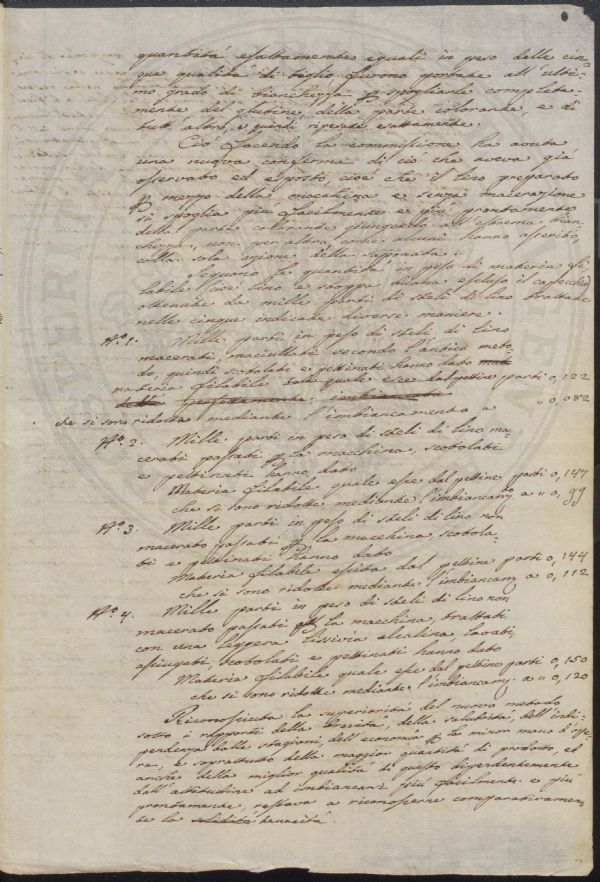 quantità esattamente eguali in peso delle cin=
que qualità di tiglio furono portate all'ulti=
mo grado di bianchezza p spogliarle completa=
mente del glutine, della parte colorante, e di
tutt'altro, e quindi ripesate esattamente.
Ciò facendo la commissione ha avuta
una nuova conferma di ciò che aveva già
osservato ed esposto, cioè che il lino preparato
p mezzo della macchina e senza macerazione
si spoglia più facilmente e più prontamente
della parte colorante giungendo all'estrema bian=
chezza, non per altro, come alcuni hanno asserito,
colla sola azione della saponata.
Seguono le quantità in peso di materia fi=
labile cioè lino e stoppa buona escluso il capecchio
ottenute da mille parti di steli di lino trattate
nelle cinque indicate diverse maniere.
Nº. 1. Mille parti in peso di steli di lino
macerati, maciullati secondo l'antico meto=
do, quindi scotolati e pettinati hanno dato
materia filabile tale quale esce dal pettine parti 0,122
perfettamente imbiancata
che si sono ridotte mediante l'imbiancamento a " 0,082
Nº. 2. Mille parti in peso di steli di lino ma=
cerati passati p la macchina, scotolati
e pettinati hanno dato
Materia filabile quale esce dal pettine parti 0,147
che si sono ridotte mediante l'imbiancam. a " 0,99
Nº. 3. Mille parti in peso di steli di lino non
macerato passati p la macchina, scotola=
ti e pettinati hanno dato
Materia filabile escita dal pettine parti 0,144
che si sono ridotte mediante l'imbiancam. a 0,112
Nº. 4. Mille parti in peso di steli di lino non
macerato passati p la macchina, trattati
con una leggera lissivia alcalina, lavati,
asciugati, scotolati e pettinati hanno dato
Materia filabile quale esce dal pettine parti 0,150
che si sono ridotte mediante l'imbiancam. a " 0,120
Riconosciuta la superiorità del nuovo metodo
sotto i rapporti della brevità, della salubrità, dell'indi=
pendenza dalle stagioni, dell'economia p la minor mano d'ope=
ra, e soprattutto della maggior quantità di prodotto, ed
anche della miglior qualità di questo dipendentemente
dall'attitudine ad imbiancarsi più facilmente e più
prontamente, restava a riconoscerne comparativamen=
te la solidità tenacità.